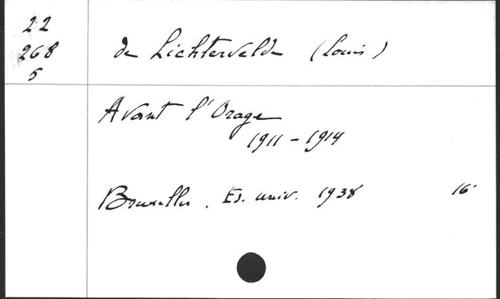 22
268
5
de Lichtervelde (Louis)
Avant l'Orage
1911 - 1914
Bruxelles. Ed. univ. 1938 16°